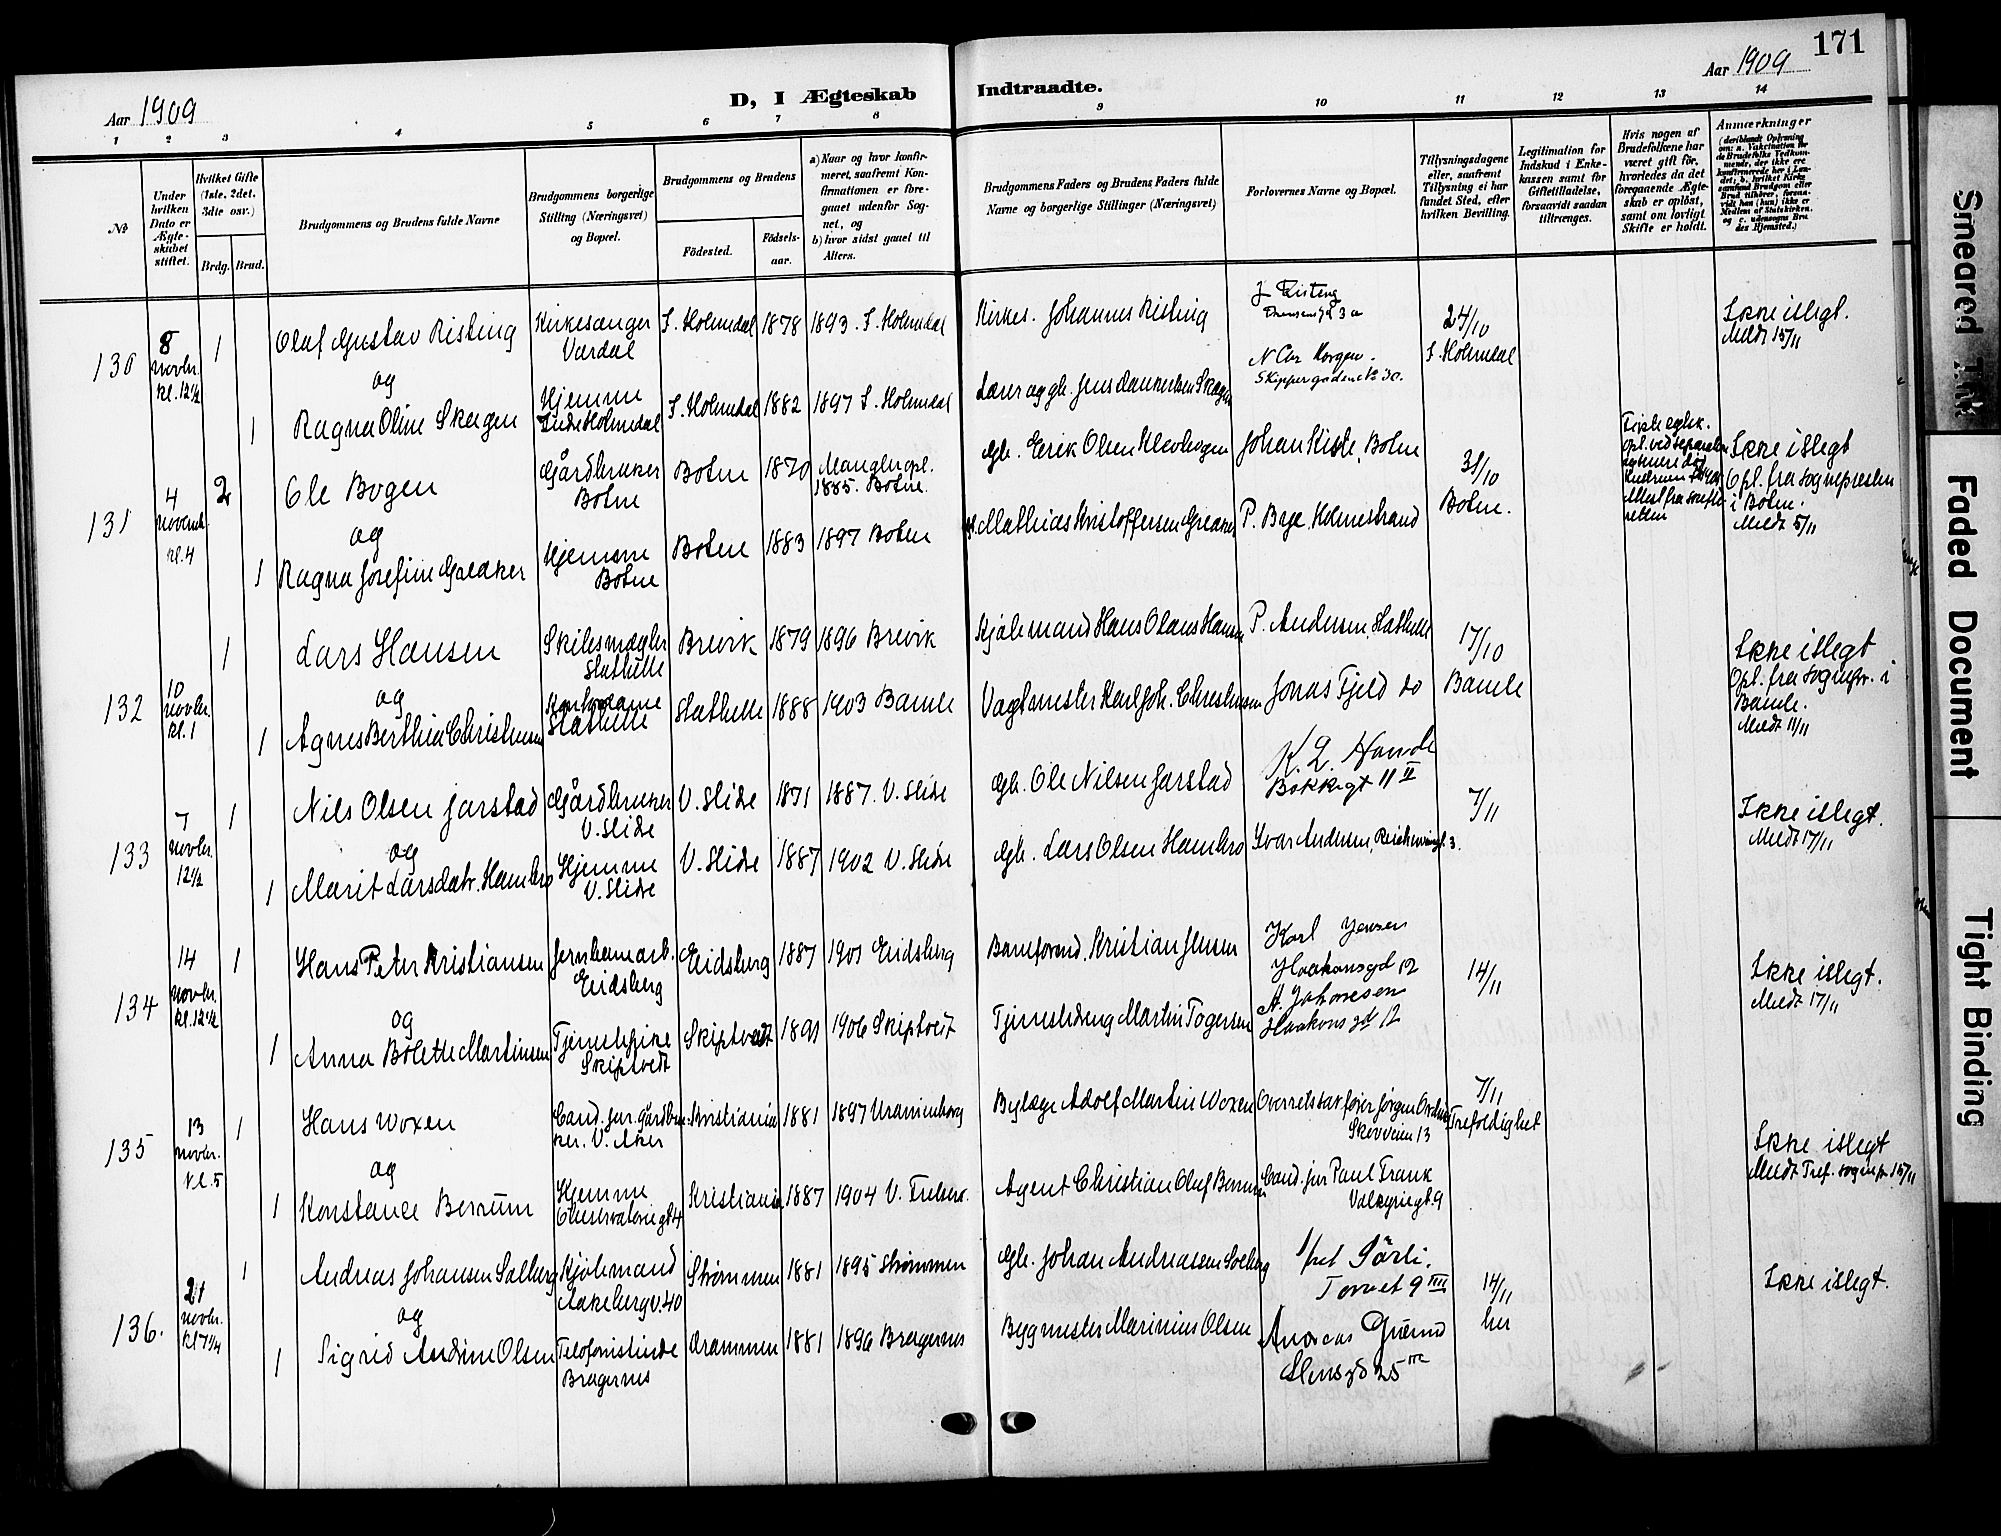 171
Aar 1909
D, I Ægteskab Indtraadte.
Aar 1909
1 2 3 4 5 6 7 8 9 10 11 12 13 14
No
Under hvilken Dato er Ægteskabet stiftet.
Hvilket Gifte (1ste, 2det, 3dte osv.)
Brdg. Brud.
Brudgommens og Brudens fulde Navne
Brudgommens borgerlige Stilling (Næringsvei) og Bopæl.
Brudgommens og Brudens
Födested.
Födselsaar.
a) Naar og hvor konfirmeret, saafremt Konfirmationen er foregaaet udenfor Sognet, og
b) hvor sidst gaaet til Alters.
Brudgommens Faders og Brudens Faders fulde Navne og borgerlige Stillinger (Næringsvei)
Forlovernes Navne og Bopæl.
Tillysningsdagene eller, saafremt Tillysning ei har fundet Sted, efter hvilken Bevilling.
Legitimation for Indskud i Enkekassen samt for Giftetilladelse, forsaavidt saadan tiltrænges.
Hvis nogen af Brudefolkene har været gift för, hvorledes da det foregaaende Ægteskab er oplöst, samt om lovligt Skifte er holdt.
Anmærkninger
130
8 novbr. kl. 12½
1
Olaf Gustav Risting
Kirkesanger Vardal
S. Holmedal
1878
1893. S. Holmedal
Kirkes. Johannes Risting
J Risting
24/10 S. Holmedal
Ikke islegt.
Meldt 15/11
og
1
Ragna Oline Skagen
Hjemme Søndre Holmedal
S. Holmedal
1882
1897 S. Holmedal
Skippergaden No 30.
131
4 novemb. kl. 4
2
Ole Bogen
Gårdbruker Botne
Botne
1870
Mangler opl. 1885. Botne.
Gb. Eerik Olsen
Johan Kiste, Botne
31/10 Botne.
Ikke islegt
Opl. fra sognepresten i Botne.
Meldt 5/11
og
1
Ragna Josefine Greaker
Hjemme Botne
Botne
1883
1897 Botne
Mathias Kristoffersen Greaker
P. Bye, Holmestrand
132
10 novbr. kl. 1
1
Lars Hansen
Skibsmægler Stathelle
Brevik
1879
1896 Brevik
Kjøbmand Hans Olaus Hansen
P. Andersen, Stathelle
17/10 Bamle
Ikke islegt
Opl. fra sognepr. i Bamle.
Meldt 11/11
og
1
Agnes Berthea Christensen
Kontordame Stathelle
Stathelle
1888
1903 Bamle
Vagtmester Karl Joh. Christensen
Jonas Fjeld do
133
7 novbr. 12½
1
Nils Olsen Jarstad
Gårdbruker V. Slidre
V. Slidre
1871
1887. V. Slidre
Gb. Ole Nilsen Jarstad
Bökkergt 11 II
7/11
Ikke islegt.
Meldt 17/11
og
1
Marit Larsdatr. Hambro
Hjemme V. Slidre
V. Slidre
1887
1902 V. Slidre
Gb. Lars Olsen Hambro
Ivar Andersen,
134
14 novbr. kl. 12½
1
Hans Peter Kristiansen
Jernbanearb. Eidsberg
Eidsberg
1887
1901 Eidsberg
Baneformd. Kristian Jensen
Karl Jensen Haakonsgd 12
14/11
Ikke islegt.
Meldt 17/11
og
1
Anna Bolette Martinsen
Tjenestepike Skiptvedt
Skiptvedt
1891
1906 Skiptvedt
Tjenestedreng Martin Togersen
A. Johnesen Haakonsgd 12
135
13 novbr. kl. 5
1
Hans Woxen
Cand. jur. gårdbruker. V. Aker
Kristiania
1881
1897 Uranienborg
Bylæge Adolf Martin Woxen
Overretssakfører Jørgen
Skovveien 13
7/11 Trefoldighet
Ikke islegt
Meldt Tref. sognepr. 15/11
og
1
Konstance Berrum
Hjemme Observatoriegt 4
Kristiania
1887
1904 V. Frelsers.
Agent Christian Oluf Berrum
Cand. jur Paul Frank
Valkyriegt. 9
136.
21 novbr. kl 7¼
1
Andreas Johansen Solberg
Kjøbmand Aakebergv. 40
Strømmen
1881
1895 Strømmen
Gb. Johan Andreassen Solberg
Torvet 9 IIII
14/11 her
Ikke islegt.
og
1
Sigrid Andrine Olsen
Telefonistinde Bragernes
Drammen
1881
1896 Bragernes
Bygmester Marinius Olsen
Stensgd 25 III
Smeared Ink
Faded Document
Tight Binding